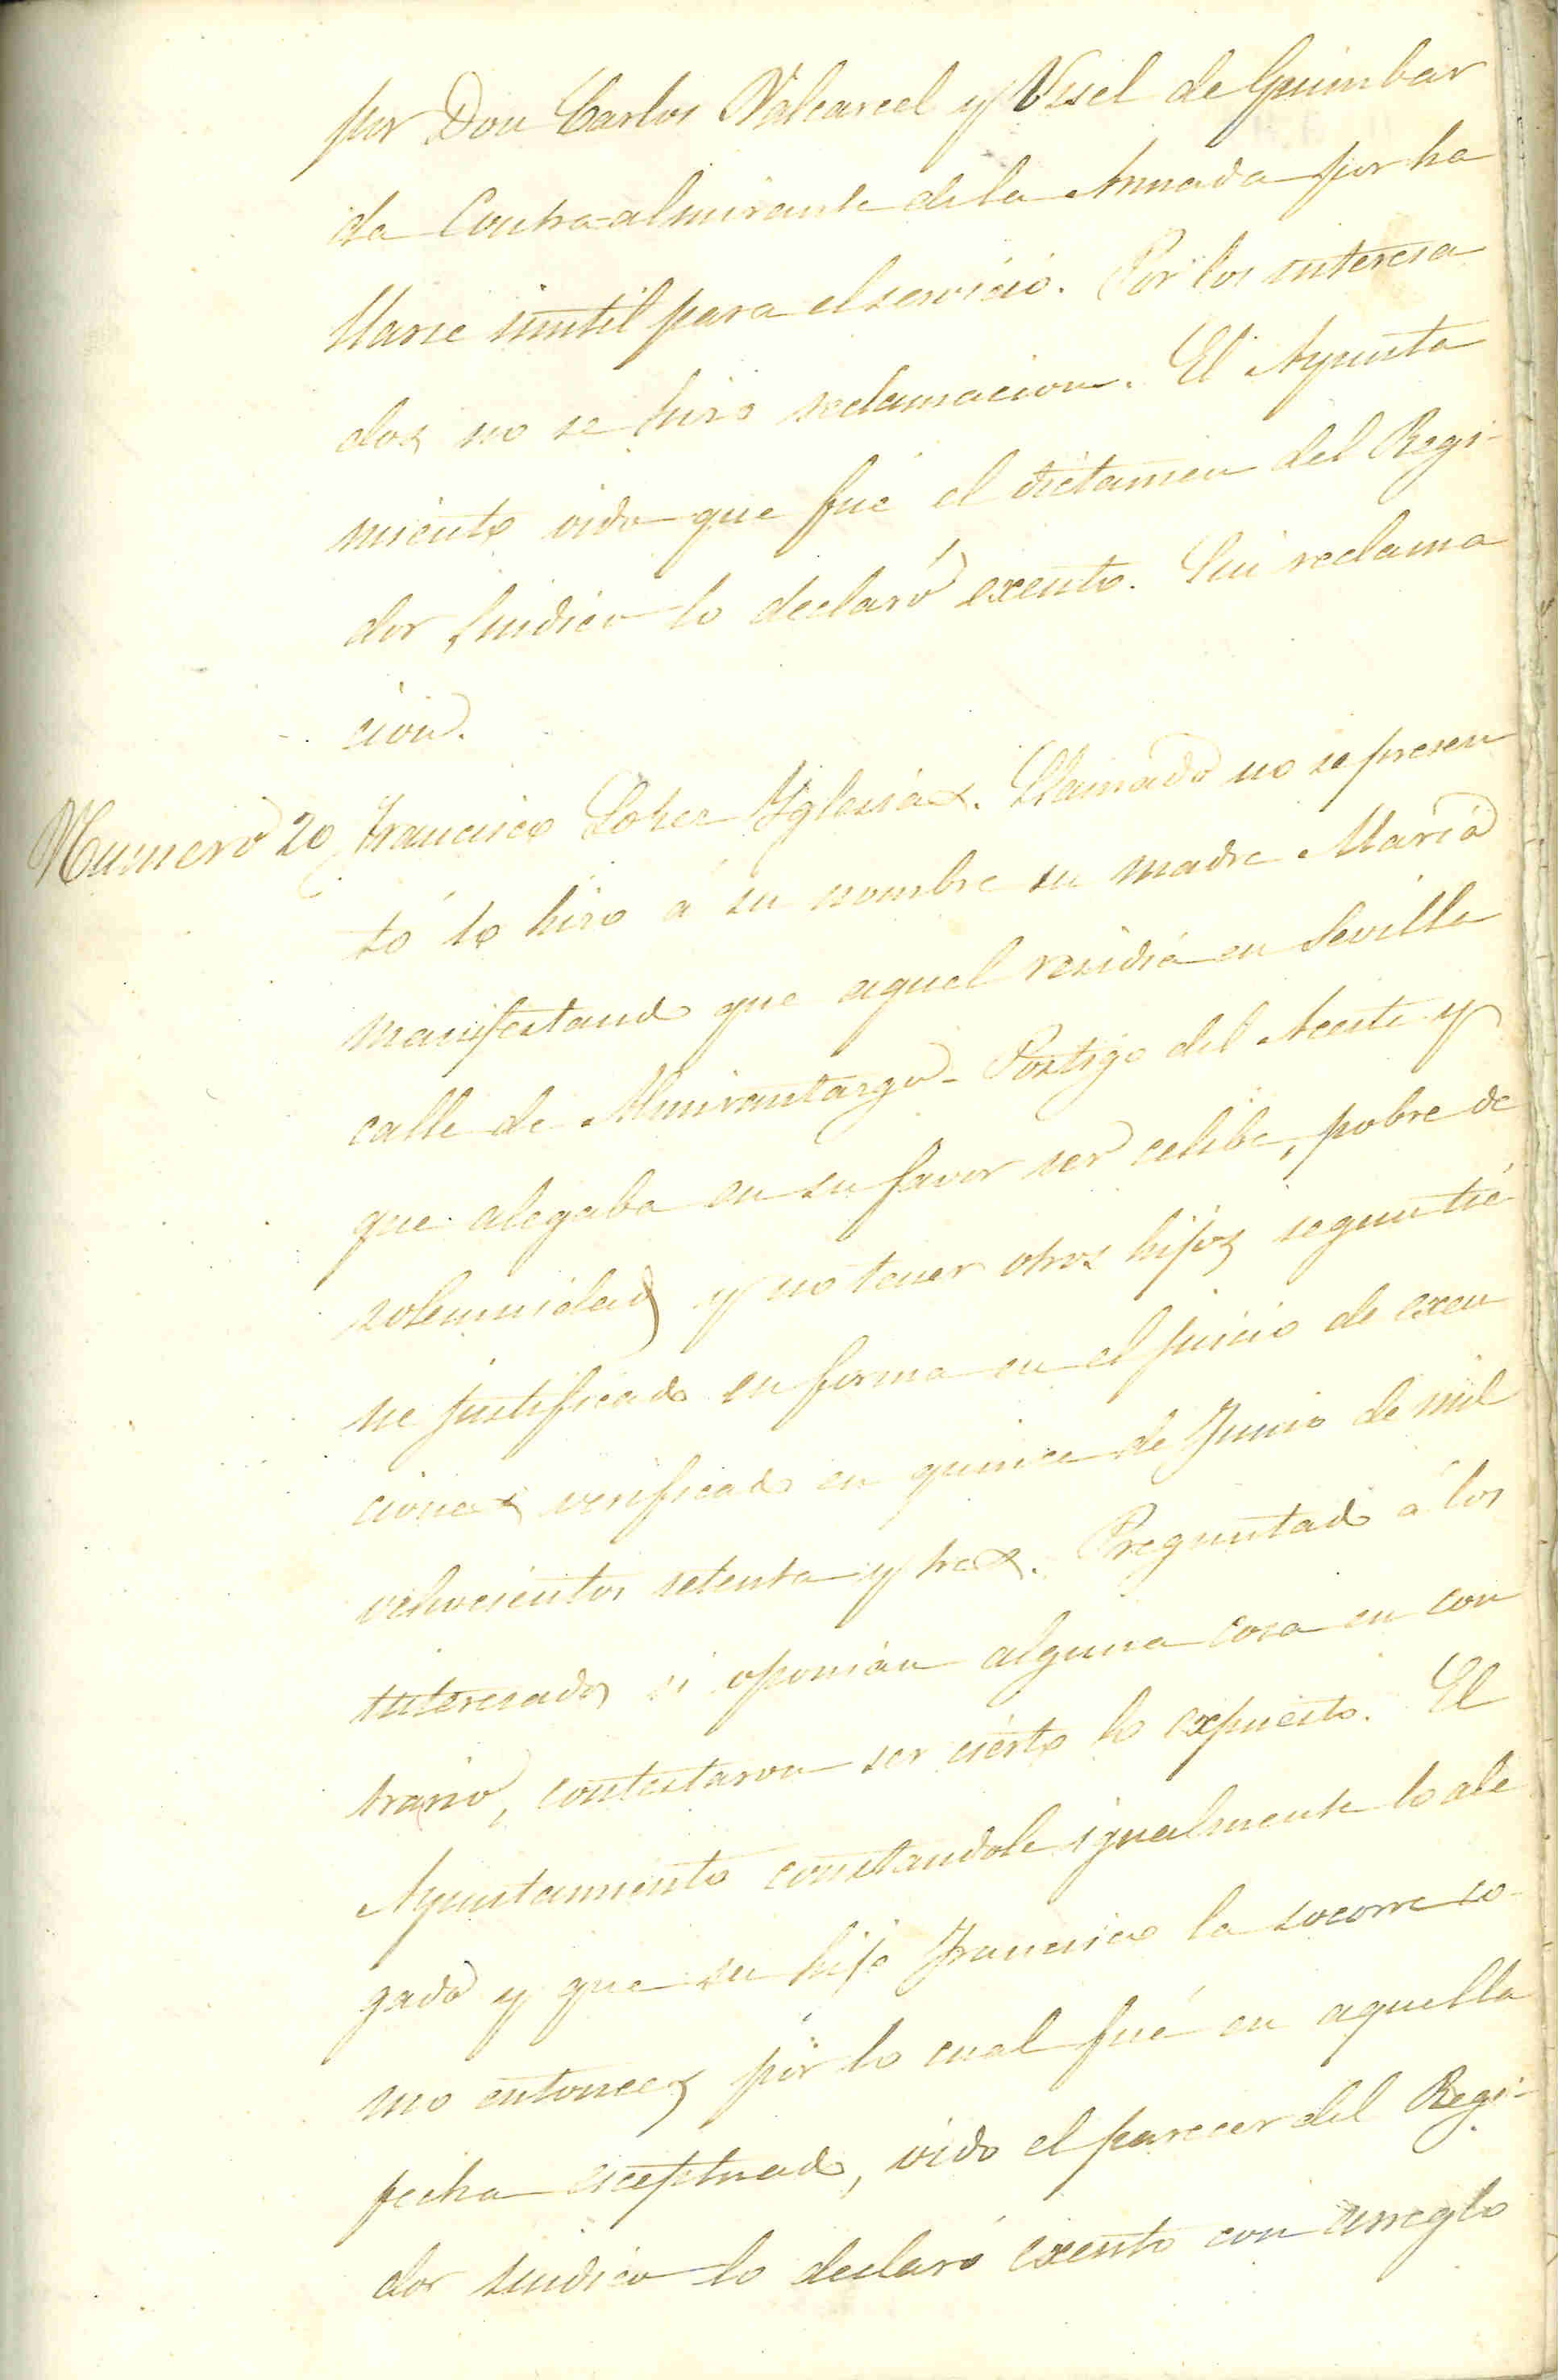 por Don Carlos Valcarcel y Usel de Guimbar
da Contra-almirante de la Armada por ha
llarse inutil para el servicio. Por los interesa
dos no se hizo reclamacion. El Ayunta
miento oido que fué el dictamen del Regi-
dor Sindico lo declaró exento. Sin reclama
cion.
Numero 20 Francisco Lopez Yglesias. Llamado no se presen
tó lo hizo á su nombre su madre Maria
manifestando que aquel residia en Sevilla
calle de Almirantazgo - Postigo del Aceite y
que alegaba en su favor ser celibe, pobre de
solemnidad y no tener otros hijos segun tie
ne justificado en forma en el juicio de exen
ciones verificado en quince de Junio de mil
ochocientos setenta y tres. Preguntado á los
interesados si oponian alguna cosa en con
trario, contestaron ser cierto lo expuesto. El
Ayuntamiento constandole igualmente lo ale
gado y que su hijo Francisco la socorre co-
mo entonces por lo cual fué en aquella
fecha exceptuado, oido el parecer del Regi-
dor sindico lo declaró exento con arreglo